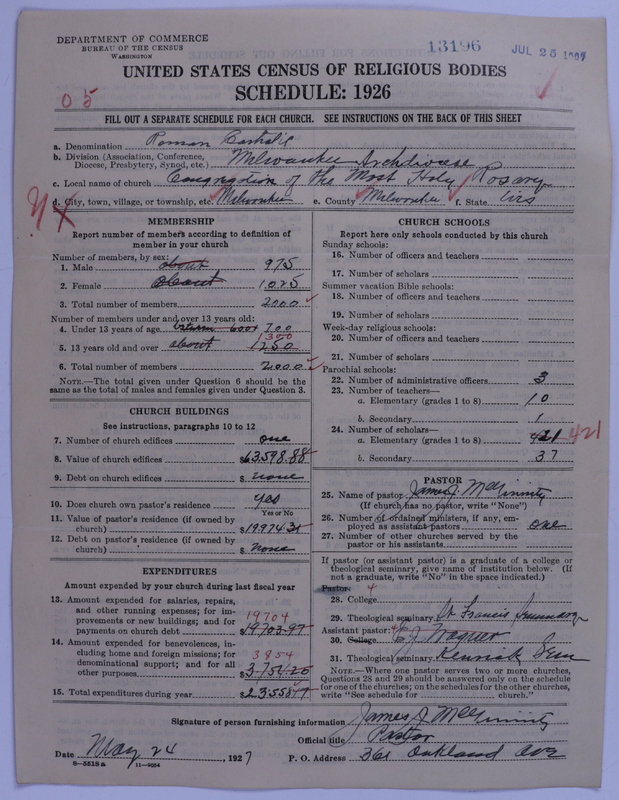 DEPARTMENT OF COMMERCE
BUREAU OF THE CENSUS
WASHINGTON
13196 JUL 25
UNITED STATES CENSUS OF RELIGIOUS BODIES
SCHEDULE: 1926
05
FILL OUT A SEPARATE SCHEDULE FOR EACH CHURCH. SEE INSTRUCTIONS ON THE BACK OF THIS SHEET
a. Denomination Roman Catholic
b. Division (Association, Conference, Diocese, Presbytery, Synod, etc.) Milwaukee Archdiocese
c. Local name of church Congregation of the Most Holy Rosary
d. City, town, village, or township, etc. Milwaukee e. County Milwaukee f. State Wis
MEMBERSHIP
Report number of members according to definition of
member in your church
Number of members, by sex:
1. Male about 975
2. Female about 1025
3. Total number of members 2000
Number of members under and over 13 years old:
4. Under 13 years of age 700
5. 13 years old and over about 1300
6. Total number of members 2000
NOTE.—The total given under Question 6 should be the
same as the total of males and females given under Question 3.
CHURCH BUILDINGS
See instructions, paragraphs 10 to 12
7. Number of church edifices one
8. Value of church edifices $63,598.88
9. Debt on church edifices $ none
10. Does church own pastor's residence yes
Yes or No
11. Value of pastor's residence (if owned by
church) $19974.31
12. Debt on pastor's residence (if owned by
church) $ none
EXPENDITURES
Amount expended by your church during last fiscal year
13. Amount expended for salaries, repairs,
and other running expenses; for im-
provements or new buildings; and for
19704
payments on church debt $19703.97
14. Amount expended for benevolences, in-
cluding home and foreign missions; for
denominational support; and for all
3854
other purposes $
15. Total expenditures during year $
CHURCH SCHOOLS
Report here only schools conducted by this church
Sunday schools:
16. Number of officers and teachers
17. Number of scholars
Summer vacation Bible schools:
18. Number of officers and teachers
19. Number of scholars
Week-day religious schools:
20. Number of officers and teachers
21. Number of scholars
Parochial schools:
22. Number of administrative officers 3
23. Number of teachers—
a. Elementary (grades 1 to 8) 10
b. Secondary 1
24. Number of scholars—
a. Elementary (grades 1 to 8) 421 421
b. Secondary 37
PASTOR
25. Name of pastor James J. McGinnity
(If church has no pastor, write "None")
26. Number of ordained ministers, if any, em-
ployed as assistant pastors one
27. Number of other churches served by the
pastor or his assistants
If pastor (or assistant pastor) is a graduate of a college or
theological seminary, give name of institution below. (If
not a graduate, write "No" in the space indicated.)
Pastor: 4
28. College
29. Theological seminary St Francis Seminary
Assistant pastor:
30. College E J Wagner
31. Theological seminary Kenrick Sem
NOTE.—Where one pastor serves two or more churches,
Questions 28 and 29 should be answered only on the schedule
for one of the churches; on the schedules for the other churches,
write "See schedule for church."
Signature of person furnishing information James J McGinnity
Official title Pastor
Date May 24, 1927 P. O. Address 361 Oakland Ave
8—5518a 11—9034